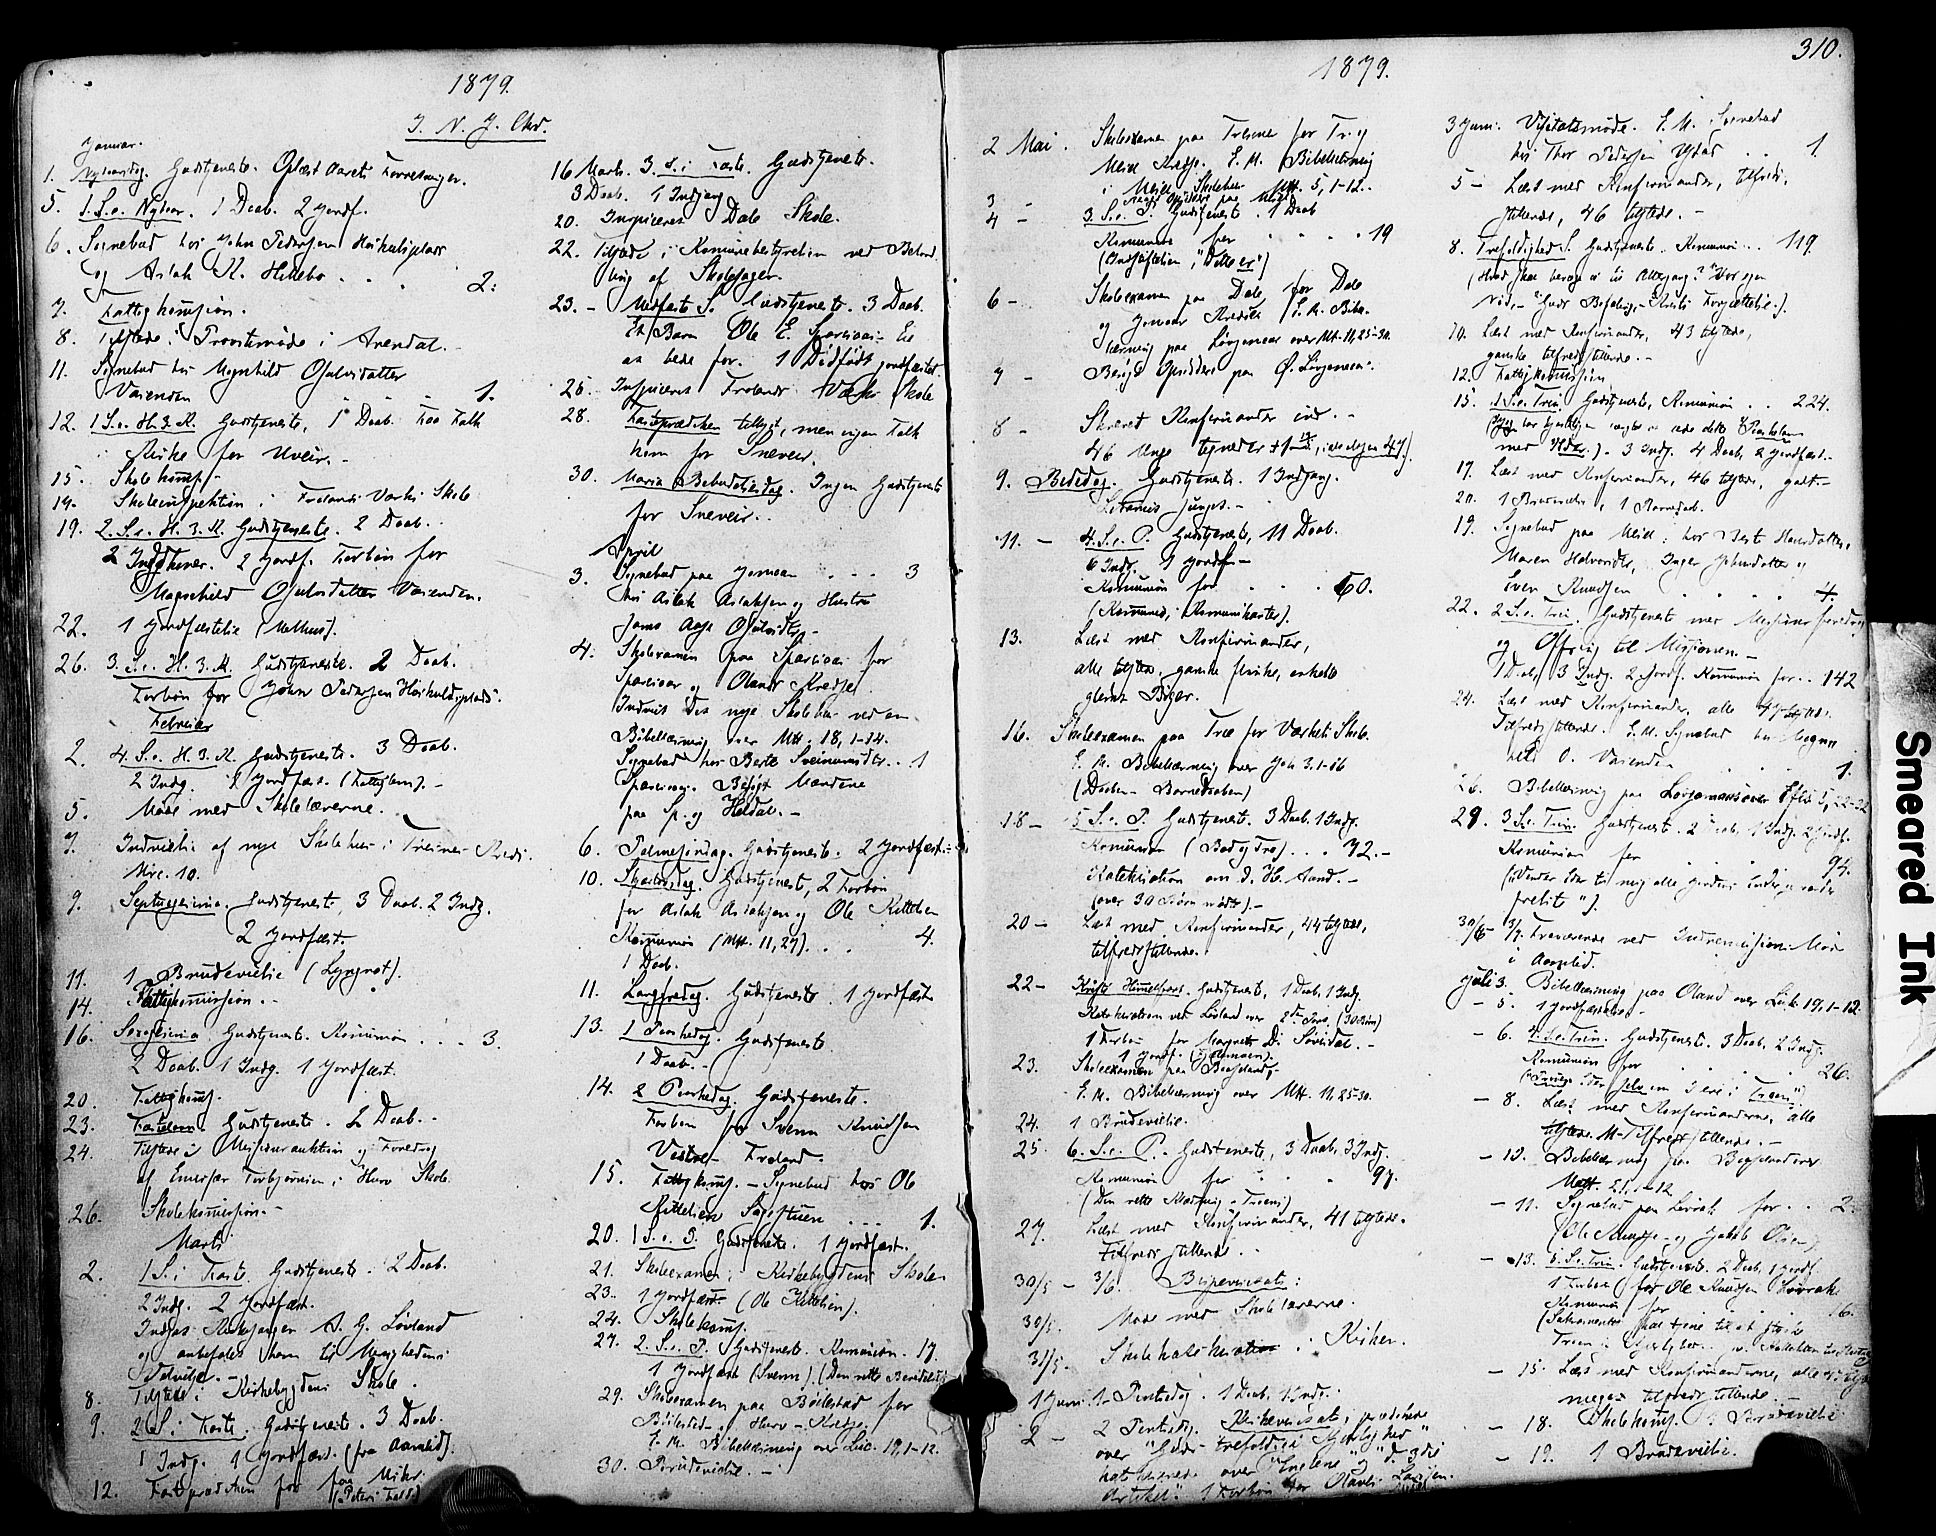 1879.
J. N. J. Chr.
Januar.
1. Nytaarsdag. Gudstjeneste. Oplæst Aarets Forretninger.
5. 1. S. e. Nytaar. 1 Daab. 2 Jordf.
6. Sognebud hos John Pedersen Heskulsplads
og Aslak K. Hillebo . . . 2.
7. Fattigkomission.
8. Tilstede i Provstemøde i Arendal.
11. Sognebud hos Magnhild Ojulsdatter
Vaienden . . 1.
12. 1 S. e. H. 3. K. Gudstjeneste, 1 Daab. Faa Folk
i Kirke for Uveir.
15. Skolekomss.
17. Skoleinspektion i Frolands Værks Skole
19. 2. S. e. H. 3. K. Gudstjeneste. 2 Daab.
2 Indg. 2 Jordf. Forbøn for
Magnhild Ojulsdatter Vaienden.
22. 1 Jordfæstelse (Mølhus).
26. 3. S. e. H. 3. K. Gudstjeneste. 2 Daab.
Forbøn for John Pedersen Heskulsplads.
Februar
2. 4. S. e. H. 3. K. Gudstjeneste. 3 Daab.
2 Indg. 1 Jordfæst. (Fattiglem).
5. Møde med Skolelærerne.
7. Indvielse af nye Skolehus i Kreds.
Mrc. 10.
9. Septuagesima. Gudstjeneste, 3 Daab. 2 Indg.
2 Jordfæst.
11. 1 Brudevielse (Lyngrot).
14. Fattigkomission.
16. Sexagesima Gudstjeneste. Komunion . . . 3.
2 Daab. 1 Indg. 1 Jordfæst.
20. Fattigkoms.
23. Fastelavn. Gudstjeneste. 2 Daab.
24. Tilstede i Missionsauktion og Foredrag
af Emissær Torbjørnsen i Skole.
26. Skolekomission.
Marts
2. 1 S. i Faste. Gudstjeneste. 2 Daab.
2 Indg. 2 Jordfæst.
Indsat Kirkesanger A. G. Løvland
og anbefalet ham til Menighedens
Velvilje.
8. Tilstede i Kirkebygdens Skole.
9. 2 S. i Faste. Gudstjeneste. 3 Daab.
1 Indg. 1 Jordfæst. (fra Aamlid).
12. Fasteprædiken for faa Mskr.
(Peters Fald)
16 Marts. 3. S. i Faste. Gudstjeneste.
3 Daab. 1 Indgang
20. Inspiceret Dale Skole.
22. Tilstede i Komunebestyrelsen ved Behand
ling af Skolesager.
23. - Midfaste S. Gudstjeneste. 3 Daab.
Et Barn Ole E. Sparsaas. Lei
at bede for. 1 Dødfødt jordfæstet.
26. Inspiceret Frolands Værks Skole
28. Fasteprædiken tillyst, men ingen Folk
kom for Sneveir.
30. Maria Bebudelsesdag. Ingen Gudstjeneste
for Sneveir.
April
3. Sognebud paa Jomaas . . . 3
hos Aslak Aslaksen og Hustru
samt Aage Ojulsdtr.
4. Skolexamen paa Sparsaas for
Sparsaas og Olands Kredse.
Indviet det nye Skolehus ved en
Bibellæsning over Mtt. 18, 1-14.
Sognebud hos Berte Sveinundsdtr. . 1
Sparsaas. Besøgt Mændene
paa Sp. og Heldal.
6. Palmesøndag. Gudstjeneste. 2 Jordfæst.
10. Skjærtorsdag. Gudstjeneste, 2 Forbøn
for Aslak Aslaksen og Ole Kittelsen
Komunion (Mtt. 11, 27). . 4.
1 Daab.
11. Langfredag. Gudstjeneste. 1 Jordfæst
13. 1 Paaskedag. Gudstjeneste
1 Daab.
14. 2 Paaskedag. Gudstjeneste.
Forbøn for Svenn Knudsen
Vestre-Froland.
15. Fattigkoms. - Sognebud hos Ole
Kittelsen Sagstuen . . . 1.
20. 1 S. e. P. Gudstjeneste. 1 Jordfæst.
21. Skoleexamen i Kirkebygdens Skole
23. 1 Jordfæst (Ole Kittelsen).
24. Skolekoms.
27. 2. S. e. P. Gudstjeneste. Komunion. 17.
1 Jordfæst (Svenn). (Den rette Beredelse)
29. Skoleexamen paa Bøilestad for
Bøilestad- og Kredse.
E. M. Bibellæsning over Luc. 19, 1-12.
30. Brudevielse.
1879.
310.
2 Mai. Skoleexamen paa for
Kredse. E. M. Bibellæsning
i Skolehus Mtt. 5, 1-12.
3 -
4 - 3. S. e. P. Gudstjeneste. 1 Daab
Komunion for . . . . 19
(Indstiftelsen, "Dette er")
6 - Skoleexamen paa Dale for Dale
og Jomaas Kredse E. M. Bibel-
læsning paa Løvjomaas over Mtt. 11, 25-30.
7 - Besøgt Opsiddere paa Ø. Løvjomaas.
8 - Skrevet Konfirmander ind.
46 Unge tegnedes
9. Bededag. Gudstjeneste. 1 Indgang.
Litaniet sunget.
11. - 4. S. e. P. Gudstjeneste, 11 Daab.
6 Indg. 1 Jordf.
Komunion for . . . . 60.
(Komunes, Komunikanter).
13. Læst med Konfirmander,
alle tilstede, ganske flinke, enkelte
glemt Bøger.
16. Skoleexamen paa Træ for Værkets Skole.
E. M. Bibellæsning over Joh. 3. 1-16
(Daaben - Barnedaaben)
18 - 5 S. e. P. Gudstjeneste. 3 Daab. 1 Indg.
Komunion (Bod og Tro) . . . 72.
Katekisation om d. H. Aand.
(over 30 Børn mødt).
20 - Læst med Konfirmander, 44 tilstede,
tilfredsstillende.
22 - Kristi Himmelfart. Gudstjeneste, 1 Daab, 1 Indg.
Katekisation ved Løvland over 2den Tros. (30 Børn)
1 Forbøn for Margrete D. Søvisdal.
1 Jordf. (Jomaas).
23. Skoleexamen paa Bogeland,
E. M. Bibellæsning over Mtt. 11, 25-30.
24. 1 Brudevielse.
25. 6. S. e. P. Gudstjeneste, 3 Daab, 3 Indg.
Komunion for . . . 97.
(Den rette Nadver - Troens)
27. Læst med Konfirmander, 41 tilstede.
Tilfredsstillende.
30/5 - 3/6. Bispevisitats:
30/5. Møde med Skolelærerne.
31/5. Skolekatekisation i Kirken.
1 Juni. 1 Pintsedag. 1 Daab, 1 Indg.
2 - 2 Pintsedag. Kirkevisitats, prædikede
over "Guds trefoldige Kjærlighed"
katekiserede over "Englene" og "d. 3die
Artikel". 1 Forbøn for Olaves Larsen.
3 Juni. Visitatsmøde. E. M. Sognebud
hos Thor Pedersen Ydse . . 1.
5 - Læst med Konfirmander, tilfreds-
stillende, 46 tilstede.
8. Trefoldigheds S. Gudstjeneste. Komunion . . 119.
(Hvad skal bevæge os til Altergang? "Vor egen
Nød - "Guds Befaling - Kristi Forjættelse.).
10. Læst med Konfirmander, 43 tilstede,
ganske tilfredsstillende.
12. Fattigkomission.
15. 1 S. e. Trin. Gudstjeneste, Komunion . . 224.
(Jeg har hjertelig længtes at æde dette Paaskelam
med Eder). 3 Indg. 4 Daab, 2 Jordfæst.
17. Læst med Konfirmander, 46 tilstede, godt
20. 1 Brudevielse, 1 Barnedaab.
19. Sognebud paa : hos Berte Hansdatter,
Maren Halvorsdtr., Inger Johnsdatter og
Sven Knudsen . . . . . 4.
22. 2 S. e. Trin. Gudstjeneste med Missions foredrag
og Offring til Missionen.
1 Daab, 3 Indg. 2 Jordf. Komunion for . . 142
24. Læst med Konfirmander, alle 47 tilstede.
Tilfredsstillende. E. M. Sognebud hos Magn
hild O. Vaienden . . . 1.
26. Bibellæsning paa Løvjomaas over Efes 5, 22-32
29. 3 S. e. Trin. Gudstjeneste. 2 Daab, 1 Indg. 2 Jordf.
Komunion for . . . . 94.
("Vender Eder til mig alle Jordens Ender, og vorder
frelst").
30/6 - 3/7. Fraværende ved Indremissions Møde
i Aaserlid.
Juli 3. Bibellæsning paa Oland over Luk 19, 1-12.
- 5. 1 Jordfæstelse.
- 6. 4. S. e. Trin. Gudstjeneste. 3 Daab, 2 Indg.
Komunion for . . . . . 26.
("Prøver Eder selv om I ere i Troen").
- 8. Læst med Konfirmanderne, alle
tilstede. M. Tilfredsstillende.
- 10. Bibellæsning paa Bogeland over
Matt. 21, 1-12
- 11. Sognebud paa for . . 2.
(Ole og Jakob Olsen)
- 13. 5. S. e. Trin. Gudstjeneste. 2 Daab, 1 Jordf.
1 Forbøn (for Ole Knudsen
Komunion for 16.
(Sakramentet skal tjene til at styrke
Troen
- 15. Læst med Konfirmanderne, alle 47 tilst.
meget tilfredsstillende.
- 18. Skolekoms. 1 Brudevielse
- 19. 1 Brudevielse.
Smeared Ink